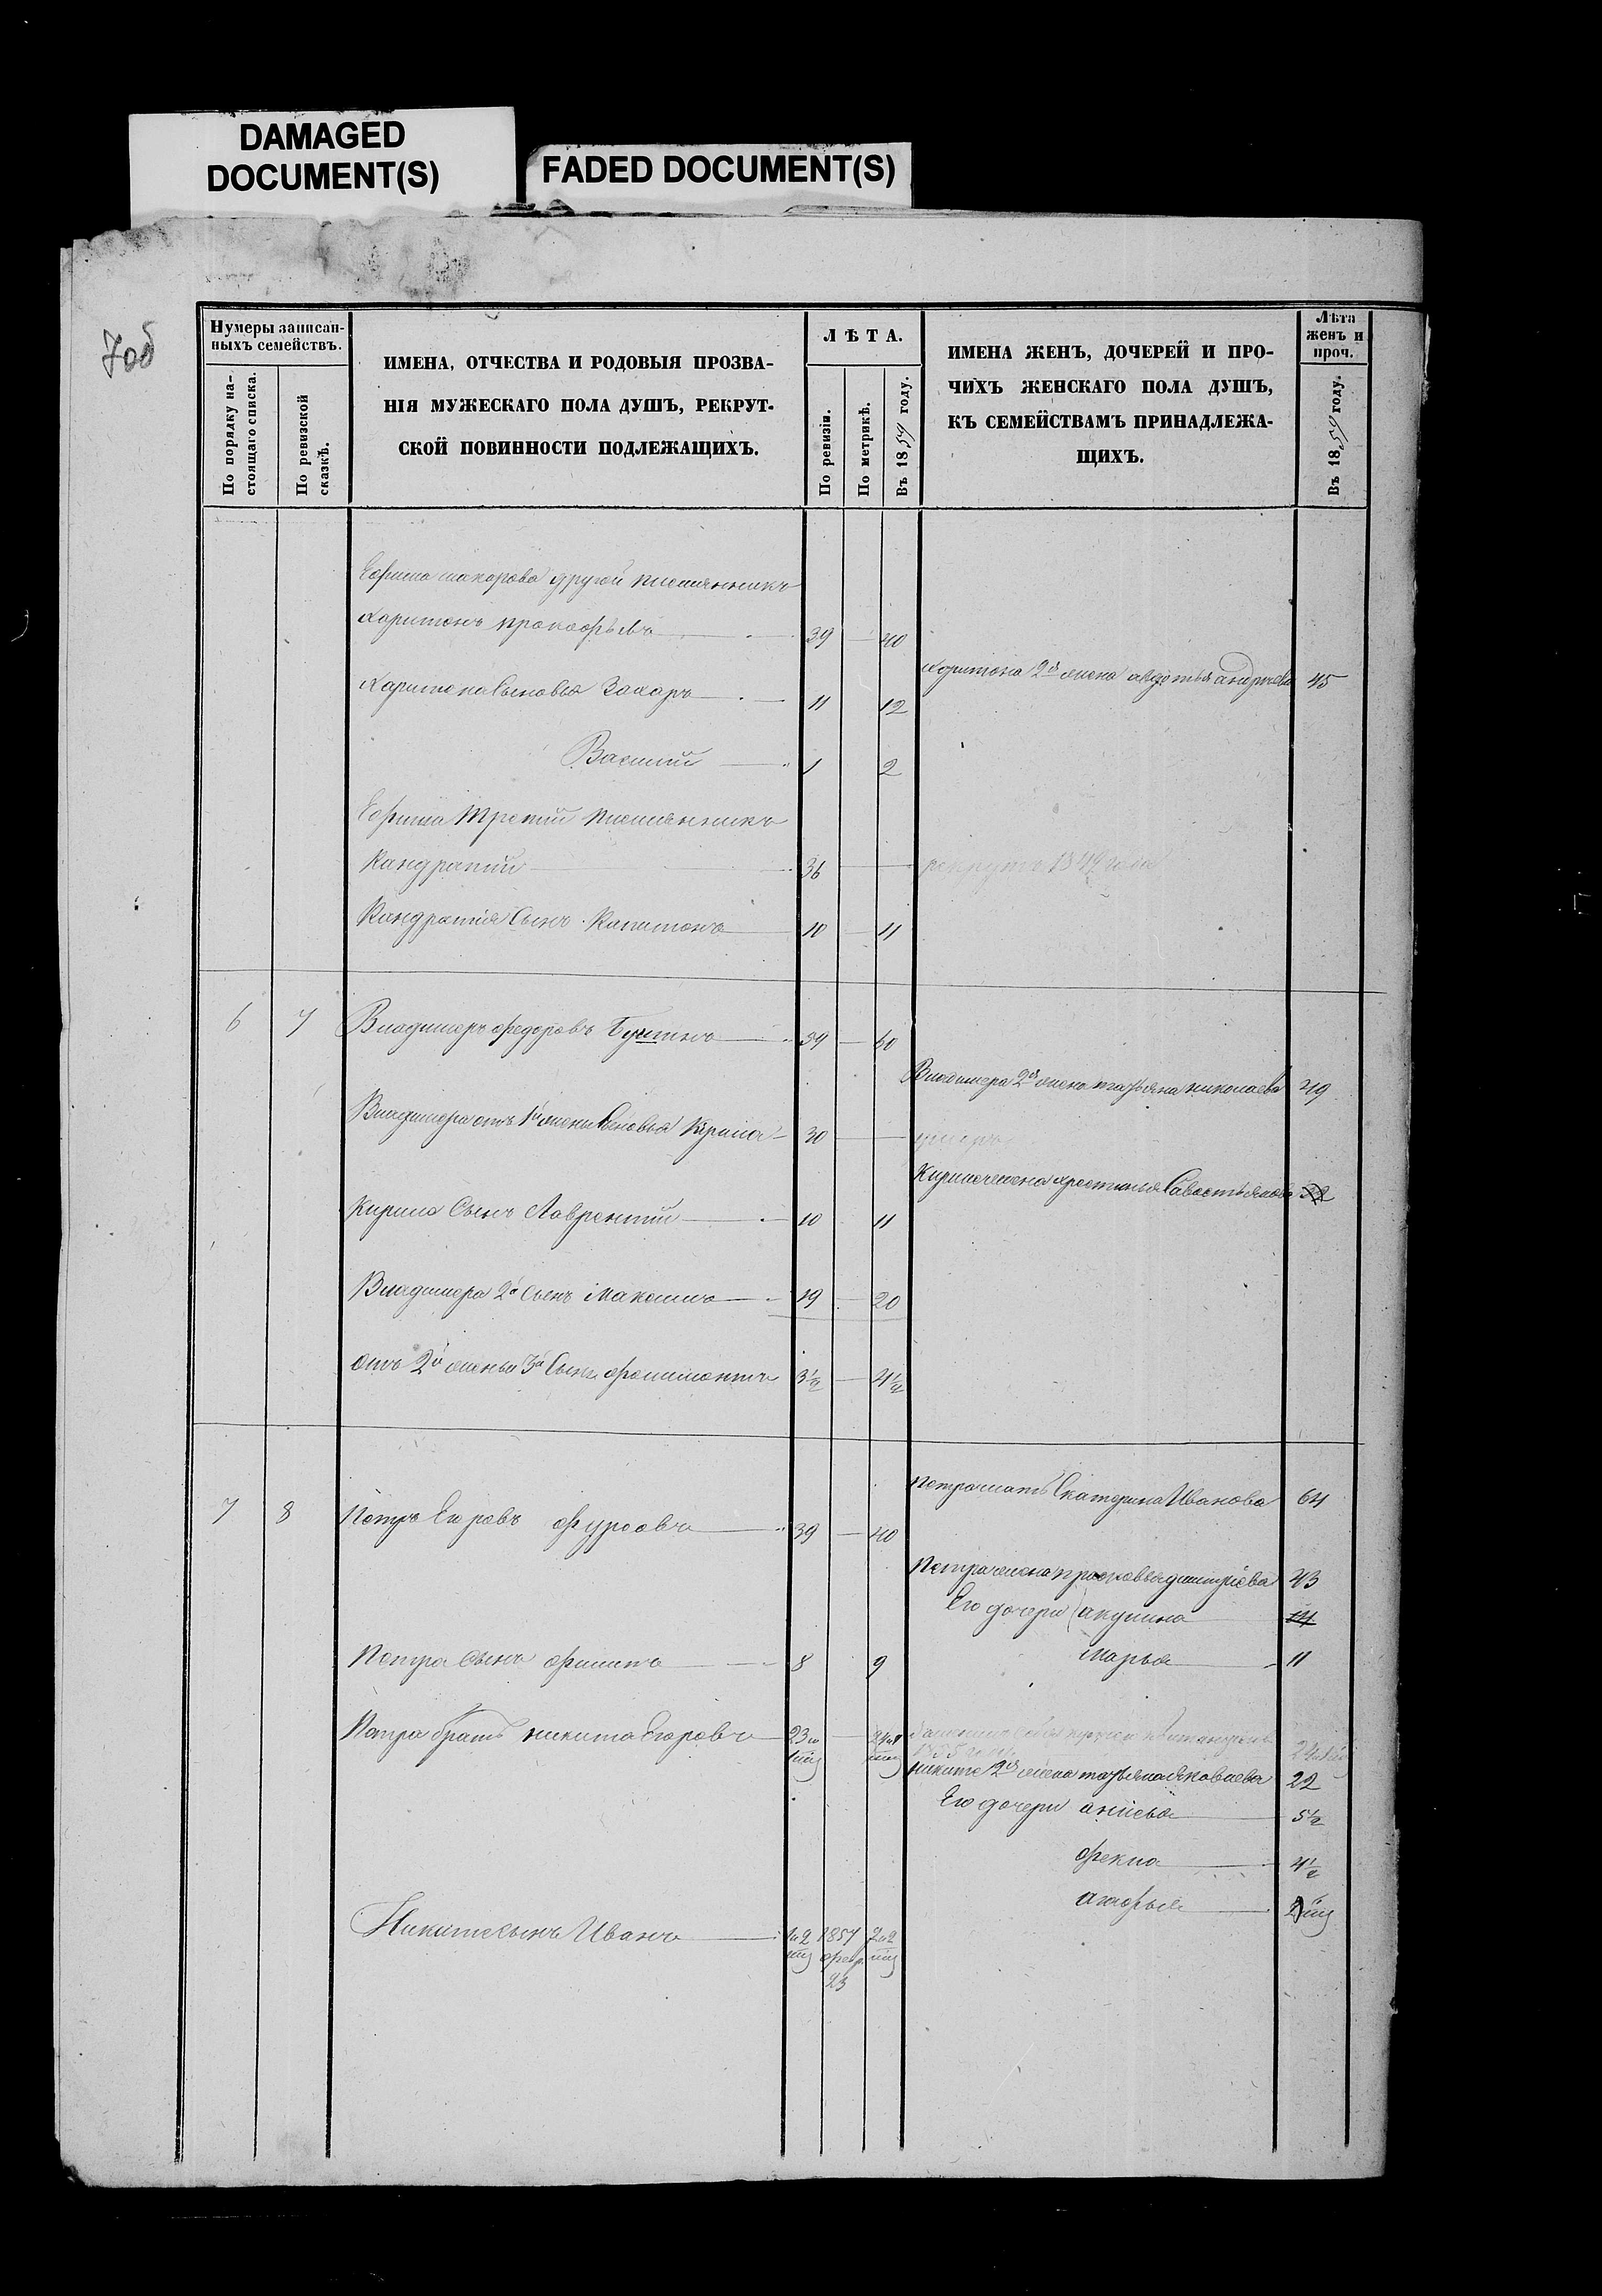 DAMAGED
DOCUMENT(S)
FADED DOCUMENT(S)
70б
Нумеры записан-
ныхъ семействъ.
По порядку на-
стоящаго списка.
По ревизской
сказкѣ.
ИМЕНА, ОТЧЕСТВА И РОДОВЫЯ ПРОЗВА-
НІЯ МУЖЕСКАГО ПОЛА ДУШЪ, РЕКРУТ-
СКОЙ ПОВИННОСТИ ПОДЛЕЖАЩИХЪ.
ЛѢТА.
По ревизіи.
По метрикѣ.
Въ 18 году.
ИМЕНА ЖЕНЪ, ДОЧЕРЕЙ И ПРО-
ЧИХЪ ЖЕНСКАГО ПОЛА ДУШЪ,
КЪ СЕМЕЙСТВАМЪ ПРИНАДЛЕЖА-
ЩИХЪ.
Лѣта
женъ и
проч.
Въ 18 году.
Ефима макарова другой племянникъ
Харитонъ прокофьевъ 39 40
Харитона 2я жена авдотья андреева 45
Харитона Сыновья Захаръ 11 12
Василий 1 2
Ефима Третий племянникъ
Кандратий 36 рекрутъ года
Кандратия Сынъ Капитонъ 10 11
6 7 Владимеръ федоровъ 59 60
Владимера 2я жена татьяна николаева 49
Владимера отъ 1й жены Сыновья Кирила 30 умеръ
Кирилы жена хрестинья Савостьянова 32
Кирила Сынъ Лаврентий 10 11
Владимера 2й Сынъ Максимъ 19 20
Отъ 2й жены 3й Сынъ филимонтъ 3½ 4½
Петра мать Екатерина Иванова 64
7 8 Петръ Егоровъ фурсовъ 39 40
Петра жена прасковья дмитриева 43
Его дочери акулина 14
Марья 11
Петра Сынъ филипъ 8 9
Петра братъ никита Егоровъ 23
Никиты 2я жена татьяна яковлева 22
Его дочери анисья 5½
фекла 4½
Никиты сынъ Иванъ 1857
февр.
23